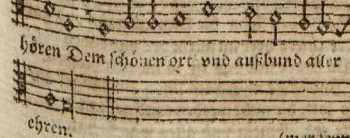 hören Dem schönen ort vnd außbund aller
ehren.